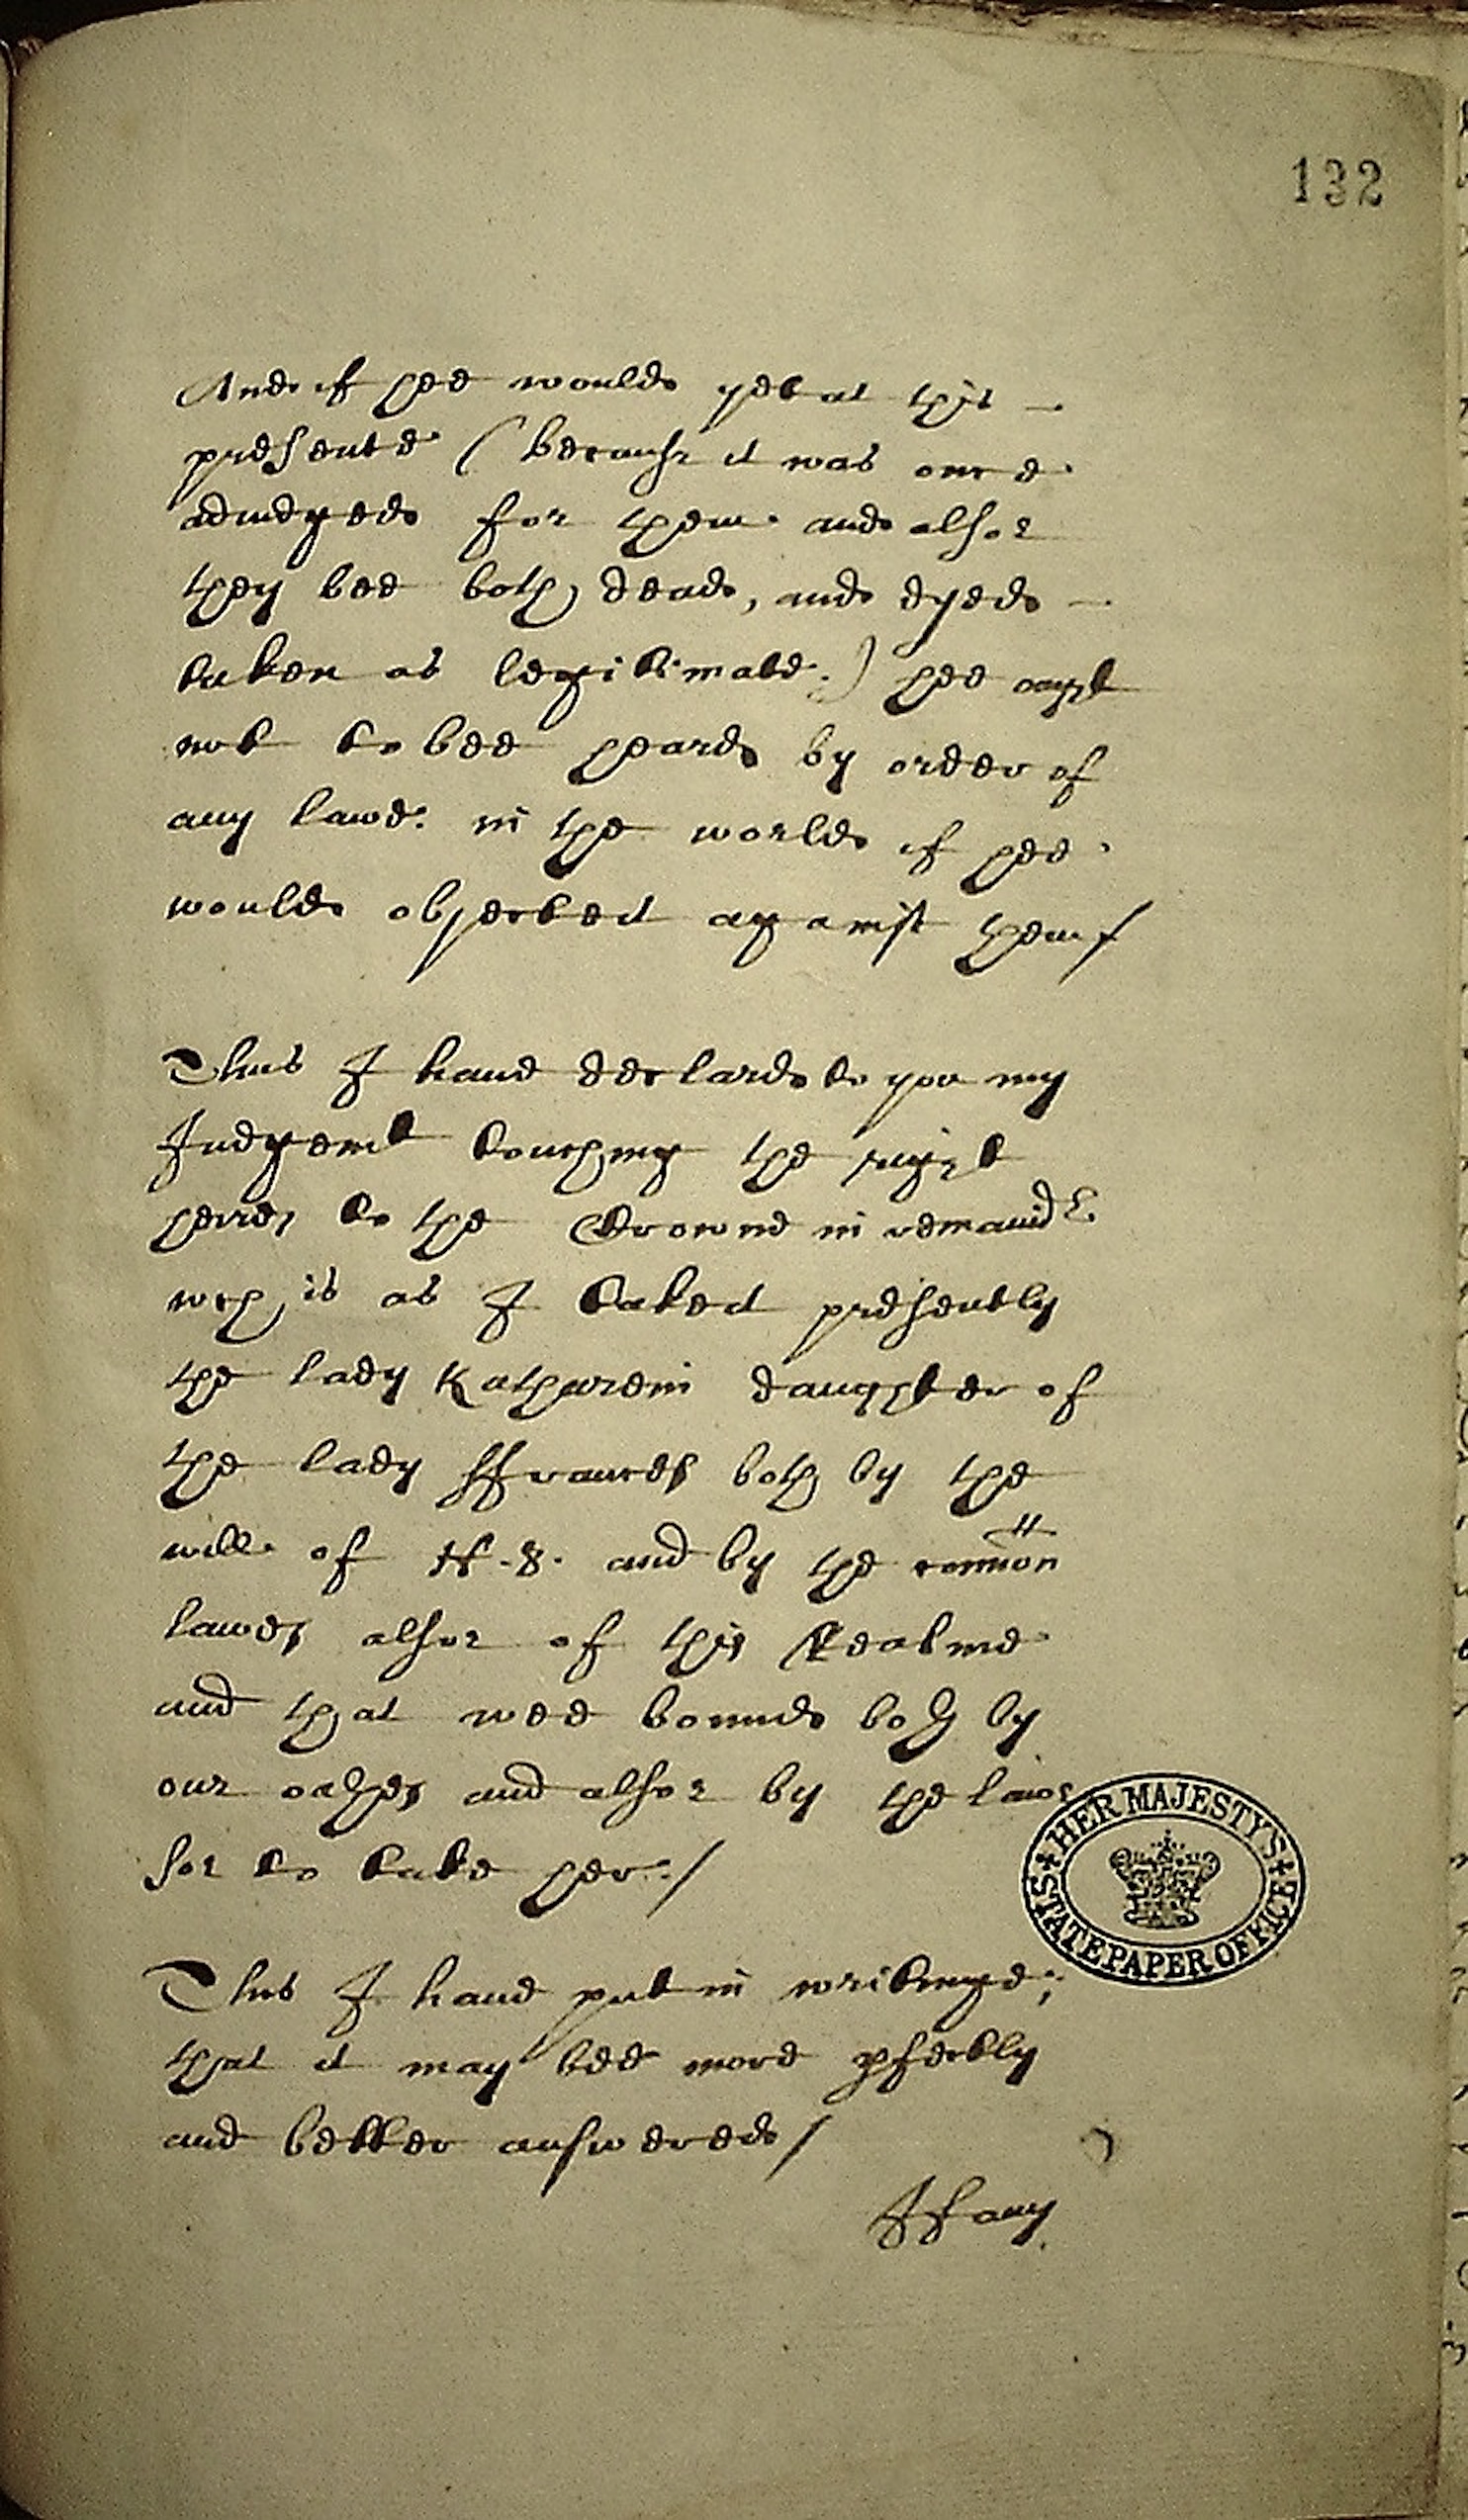 132
And if hee would yet at this –
presente (because it was once
adiudged for them and also
they bee both dead, and dyed –
taken as legittimate.) hee ought
not to bee heard by order of
any lawe in the world if hee
would object it against them /
Thus I haue declard to you my
Judgemt touching the right
heires to the Crowne in remaindr
wch is as I take it presently
the lady Katharein daughter of
the lady ffraunces both by the
will of H. 8. and by the common
lawes also of this Realme
and that wee bound both by
our oathes and also by the lawe
so to take her ./
This I haue put in writinge;
that it may bee more pfectly
and better answered /
HER MAJESTY'S
STATE PAPER OFFICE